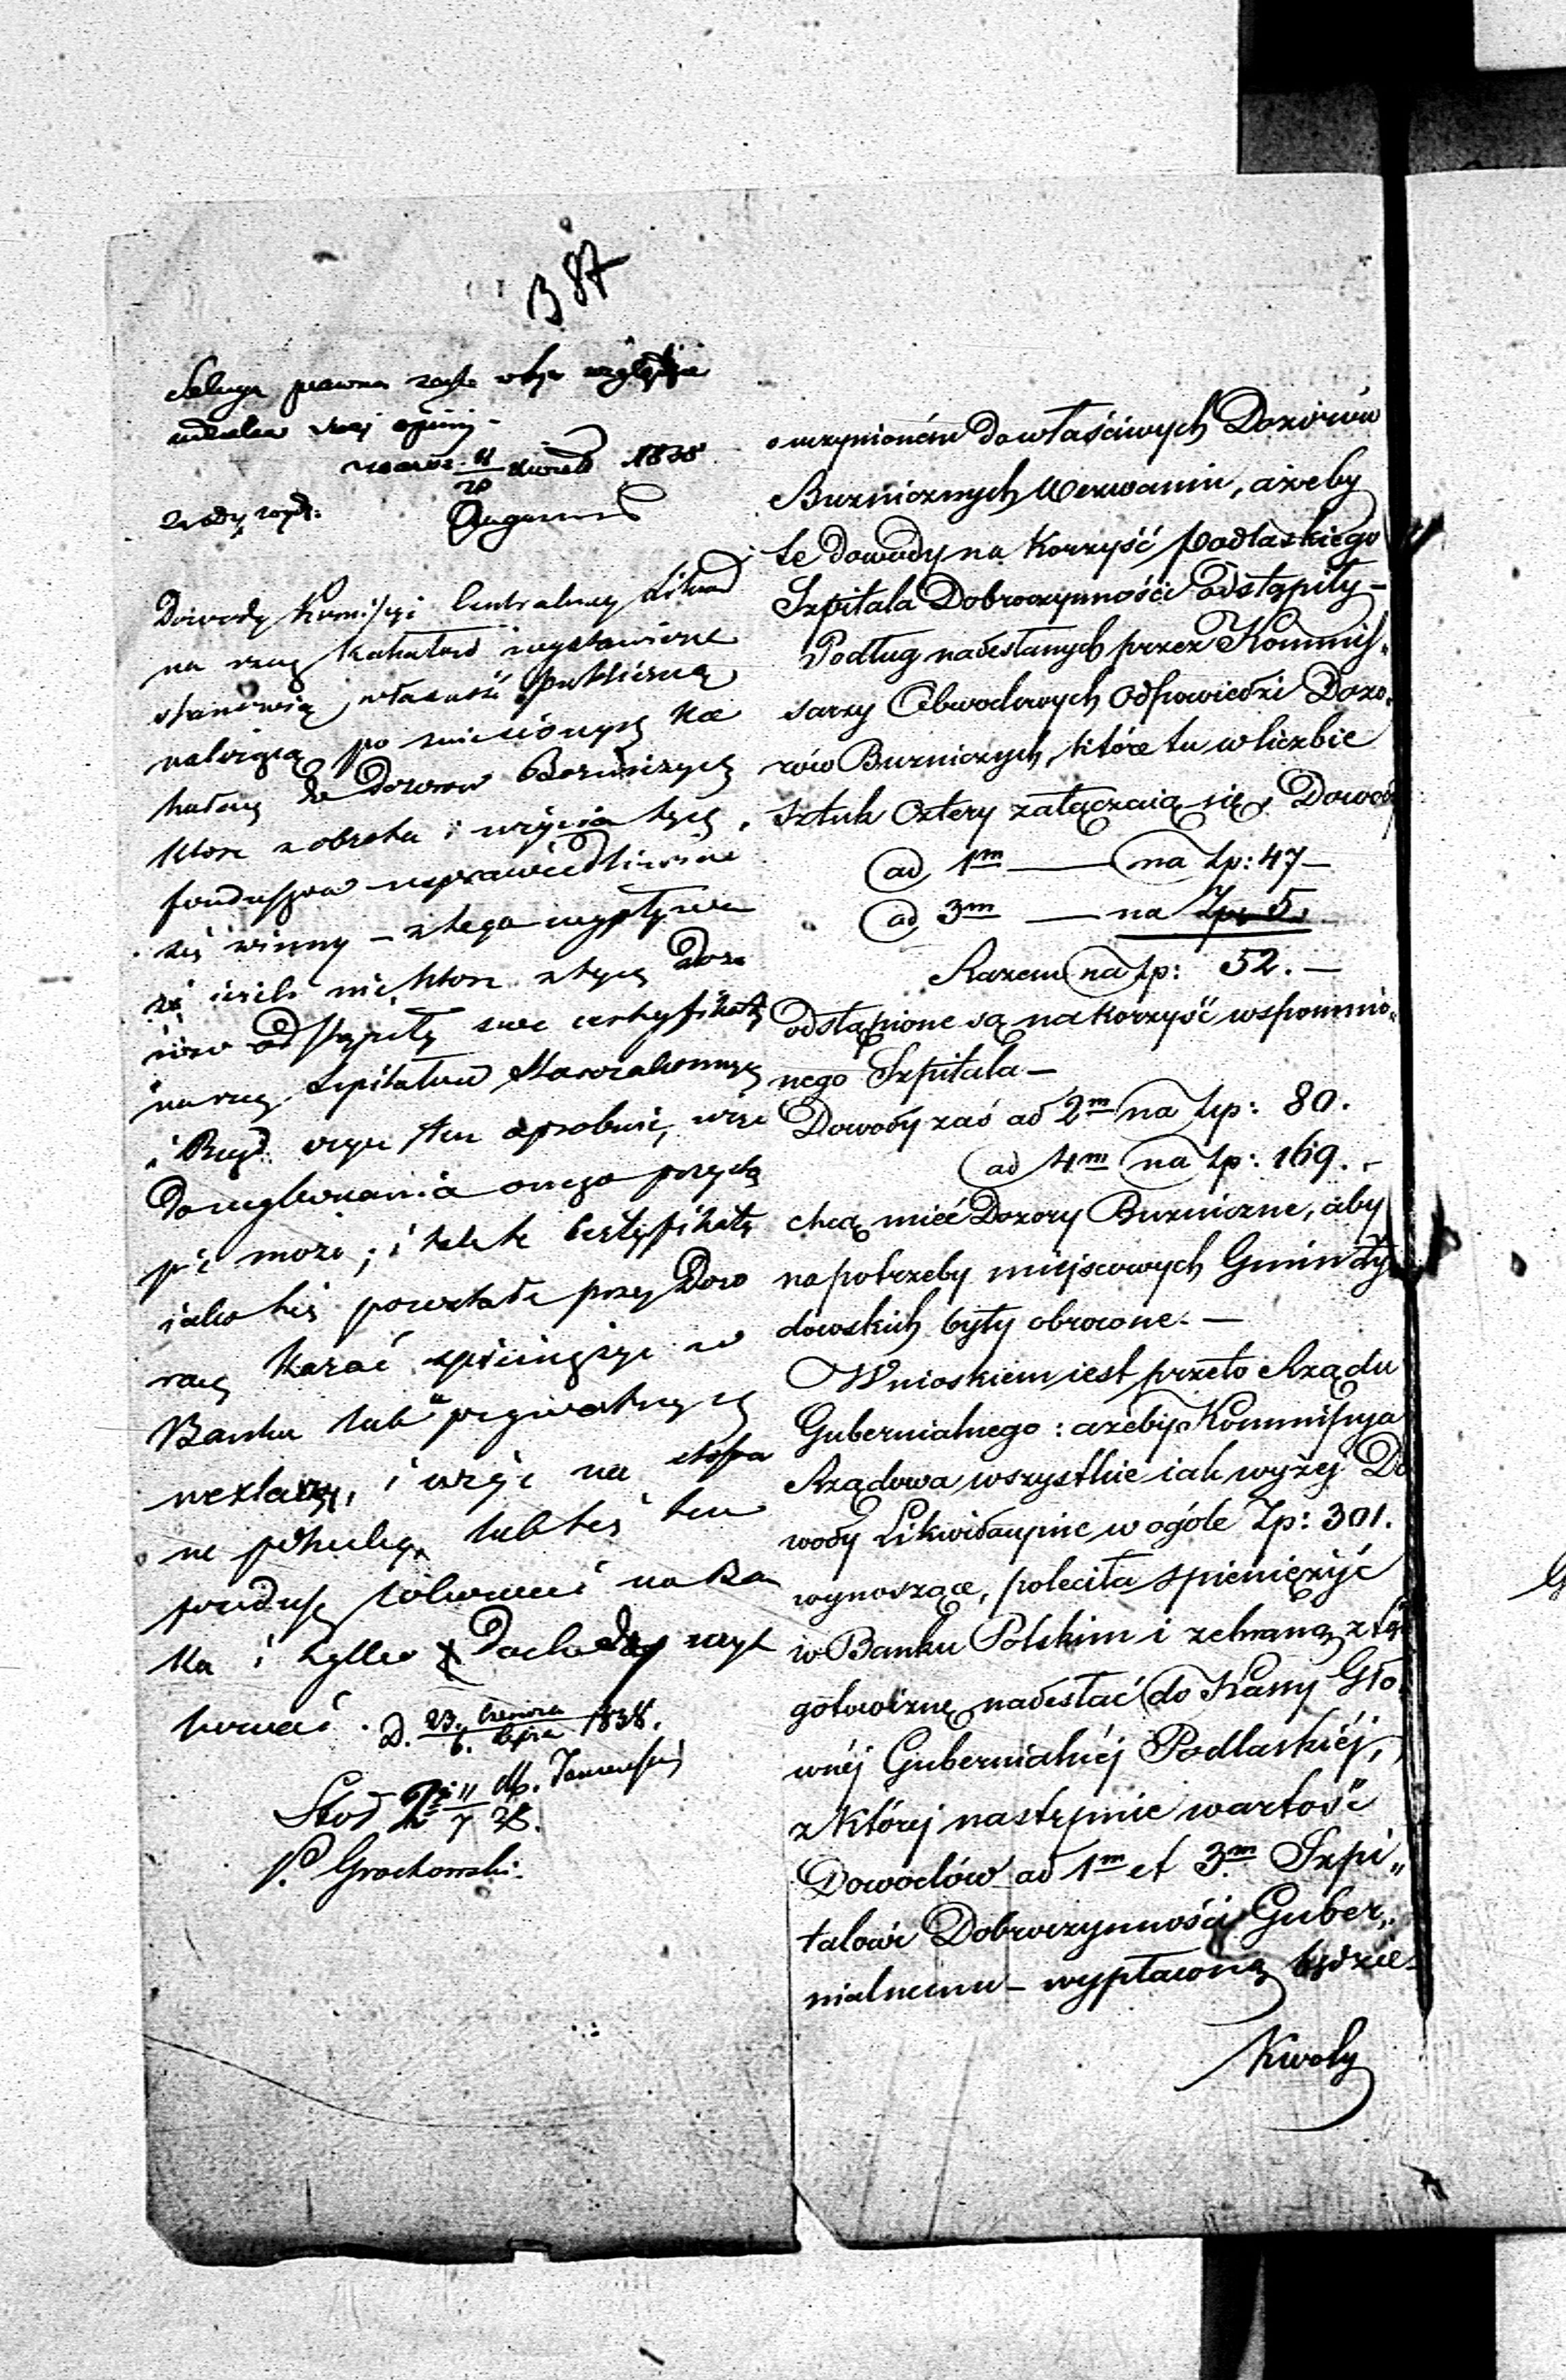 B 87
Sekcya prawna
udzieli swej opinii
1838
Dowody Kommissyi Centralney Likwid
na rzecz Kahałów wystawione
stanowią własność publiczną
należącą po zniesionych Ka
hałach do Dozorów Bożniczych
które z obrotu i użycia tych
funduszów usprawiedliwiać
się winny – z tego wypływa
że jeżeli niektóre z tych Dozo
rów odstąpiły swe certyfikaty
na rzecz Szpitalów Starozakonnych
i Rząd czyn ten aprobuie, więc
Do uskutecznienia onego przystą
pić może; i także Certyfikaty
iako też pozostałe przy Dozo
rach kazać spieniężyć w
Banku lub prywatnych
i użyć na
lub też ten
fundusz ulokować na Ban
ku i tylko Dochody uży
tkować. D. 23 Czerwca / 6. Lipca 1838.
P. Grochowski
o uczynioném do właściwych Dozorów
Bużniczych Wezwaniu, ażeby
te dowody na korzyść Podlaskiego
Szpitala Dobroczynności odstąpiły –
Podług nadesłanych przez Kommis„
sarzy Obwodowych odpowiedzi Dozo„
rów Bużniczych, które tu w liczbie
sztuk cztery załączaią się, Dowody
ad 1m — na Zp: 47 –
ad 3m — na Zp: 5.
Razem na Zp: 52. —
odstąpione są na korzyść wspomnio„
nego Szpitala –
Dowody zaś ad 2m na Zp: 80.
ad 4m na Zp: 169. –
chcą mieć Dozory Bużniczne, aby
na potrzeby miejscowych Gmin Ży
dowskich były obrócone. —
Wnioskiem iest przeto Rządu
Gubernialnego: ażeby Kommissya
Rządowa wszystkie iak wyżej Do
wody Likwidacyine w ogóle Zp: 301.
wynoszące, poleciła spieniężyć
w Banku Polskim i zebraną ztąd
gotowiznę nadesłać do Kassy Głó
wnéj Gubernialnéj Podlaskiéj,
z któréj następnie wartość
Dowodów ad 1m et 3m Szpi„
talowi Dobroczynności Guber„
nialnemu – wypłaconą będzie.
Kwoty